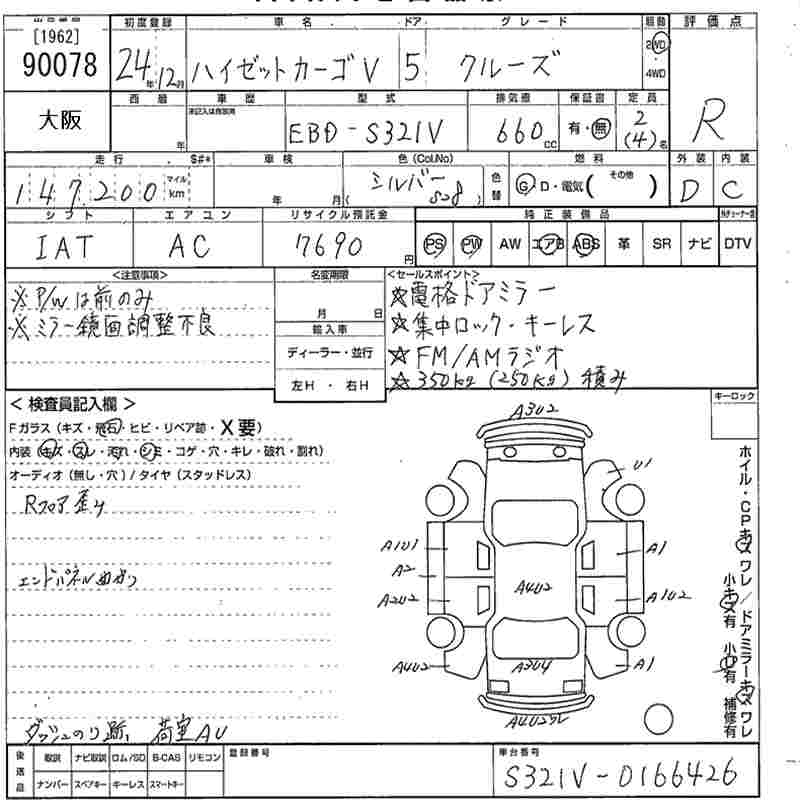 [1962]
90078
大阪
初度登録
24年12月
車名 ドア グレード
ハイゼットカーゴV 5 クルーズ
駆動
2WD
4WD
評価点
R
西暦 車歴 型式 排気量 保証書 定員
未記入は自家用
年 EBD-S321V 660cc 有・無 2(4)名
走行 S#* 車検 色(Col.No) 燃料 外装 内装
147200 マイル km 年 月 シルバー S28 色替 G D・電気( その他 ) D C
シフト エアコン リサイクル預託金 純正装備品
IAT AC 7690円 PS PW AW エアB ABS 革 SR ナビ DTV
<注意事項>
※P/Wは前のみ
※ミラー鏡面調整不良
名変期限
月 日
輸入車
ディーラー・並行
左H・右H
<セールスポイント>
☆電格ドアミラー
☆集中ロック・キーレス
☆FM/AMラジオ
☆350kg(250kg)積み
<検査員記入欄>
Fガラス(キズ・飛石・ヒビ・リペア跡・X要)
内装(キズ・スレ・汚れ・シミ・コゲ・穴・キレ・破れ・割れ)
オーディオ(無し・穴)/タイヤ(スタッドレス)
Rフロア歪み
エンドパネルめがつ
ダッシュのり跡, 荷室AU
キーロック
ホイル・CPキズ ワレ/ドアミラーキズ ワレ
小キズ有 小U有 補修有
A3U2
U1
A1U1
A1
A2
A4U2
A2U2
A1U2
A4U2
A3U4
A1
後送品
取説 ナビ取説 ロム/SD B-CAS リモコン
ナンバー スペアキー キーレス スマートキー
登録番号
車台番号
S321V-0166426